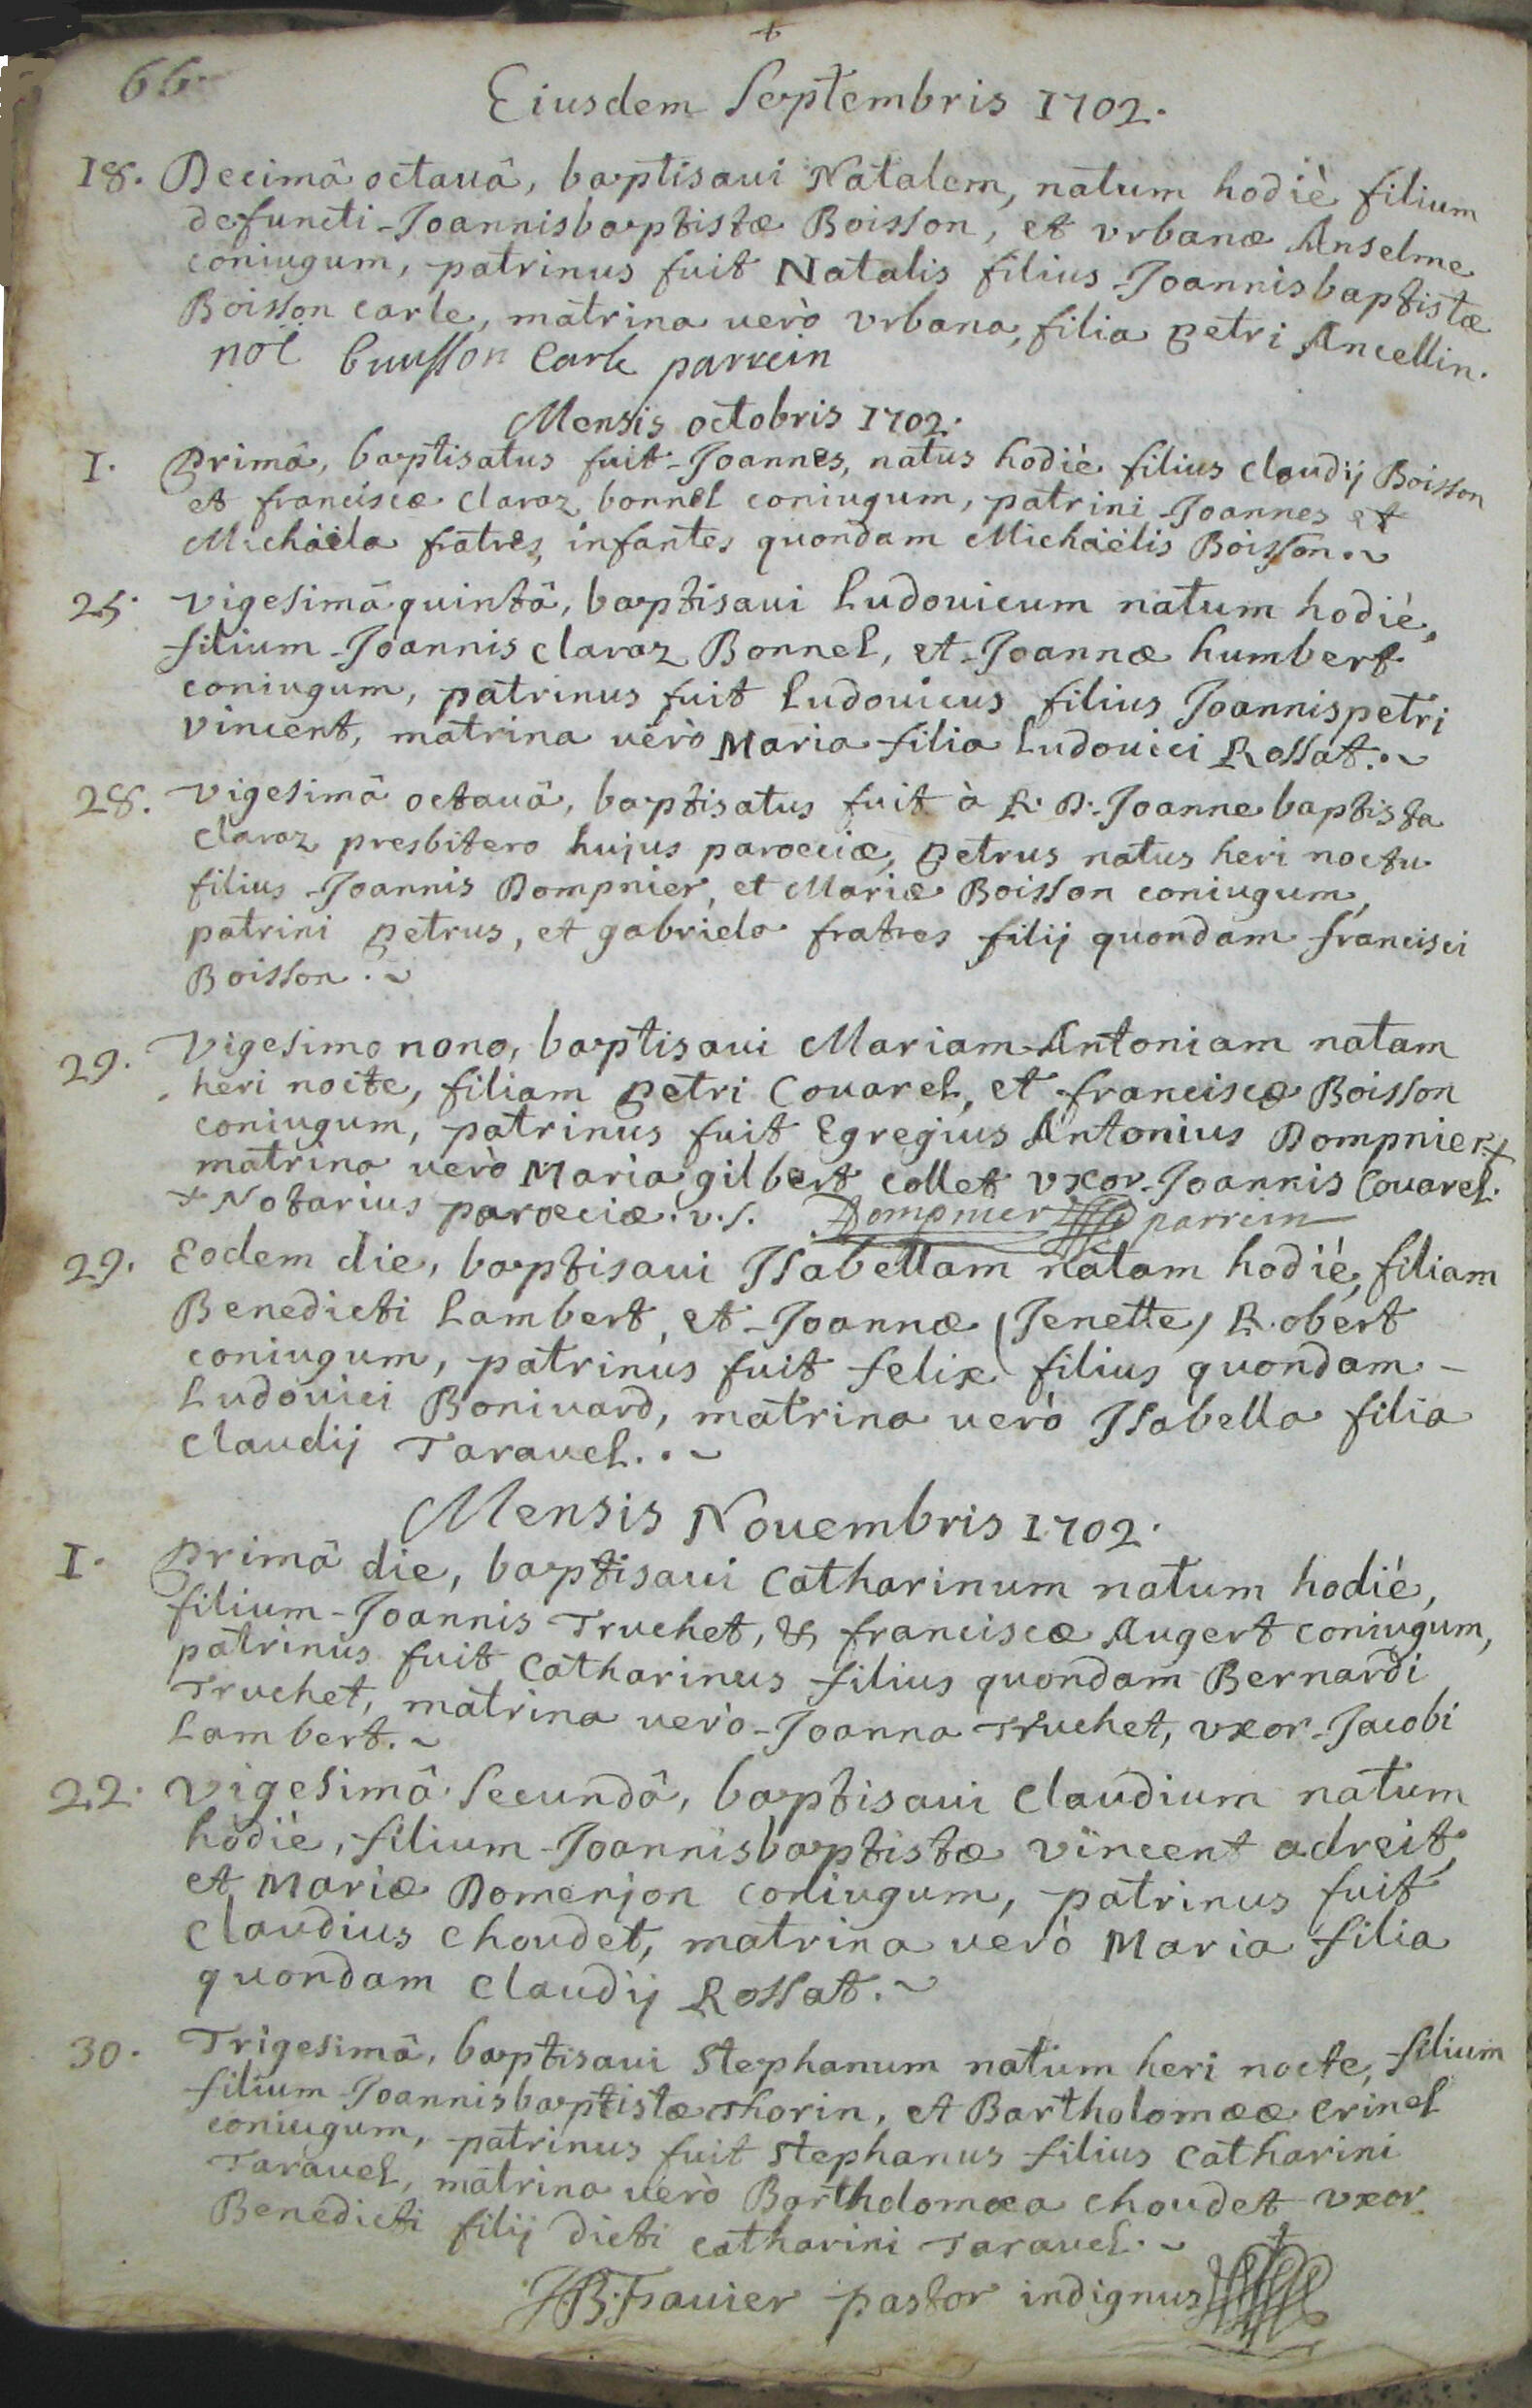 66.
Eiusdem Septembris 1702.
18. Decimâ octauâ, baptisaui Natalem, natum hodiè filium
defuncti Joannisbaptistæ Boisson, et vrbanæ Anselme
coniugum, patrinus fuit Natalis filius Joannisbaptistæ
Boisson carle, matrina uerò vrbana, filia petri Ancellin.
noi buusson Carle parrein
Mensis octobris 1702.
1. Primâ, baptisatus fuit Joannes, natus hodiè filius claudij Boisson
et franciscæ claraz bonnel coniugum, patrini Joannes et
Michaëla fratres, infantes quondam Michaëlis Boisson.~
25. vigesimâ quintâ, baptisaui Ludouicum natum hodiè,
filium Joannis claraz Bonnel, et Joannæ humbert
coniugum, patrinus fuit Ludouicus filius Joannispetri
vincent, matrina uerò Maria filia Ludouici Rossat.~
28. vigesimâ octauâ, baptisatus fuit à R. D. Joanne baptista
claraz presbitero hujus paroeciæ, petrus natus heri noctu
filius Joannis Dompnier, et Mariæ Boisson coniugum,
patrini petrus, et gabriela fratres filij quondam francisci
Boisson.~
29. Vigesimo nono, baptisaui Mariam Antoniam natam
heri nocte, filiam petri Couarel, et franciscæ Boisson
coniugum, patrinus fuit Egregius Antonius Dompnier +
matrina uerò Maria gilbert collet vxor Joannis Couarel.
+ Notarius paroeciæ. v. s. Dompnier parrein
29. Eodem die, baptisaui Isabellam natam hodiè, filiam
Benedicti Lambert, et Joannæ (Jenette) Robert
coniugum, patrinus fuit felix filius quondam -
Ludouici Boniuard, matrina uerò Isabella filia
claudij Tarauel..~
Mensis Nouembris 1702.
1. Primâ die, baptisaui catharinum natum hodiè,
filium Joannis Truchet, & franciscæ Augert coniugum,
patrinus fuit catharinus filius quondam Bernardi
Truchet, matrina uerò Joanna Truchet, vxor Jacobi
Lambert.~
22. vigesimâ secundâ, baptisaui claudium natum
hodiè, filium Joannisbaptistæ vincent adreit,
et Mariæ Domenjon coniugum, patrinus fuit
claudius choudet, matrina uerò Maria filia
quondam claudij Rossat.~
30. Trigesimâ, baptisaui Stephanum natum heri nocte, filium
filium Joannisbaptistæ thorin, et Bartholomææ crinel
coniugum, patrinus fuit Stephanus filius catharini
Tarauel, matrina uerò Bartholomæa choudet vxor
Benedicti filij dicti catharini Tarauel.~
JB. Frauier pastor indignus